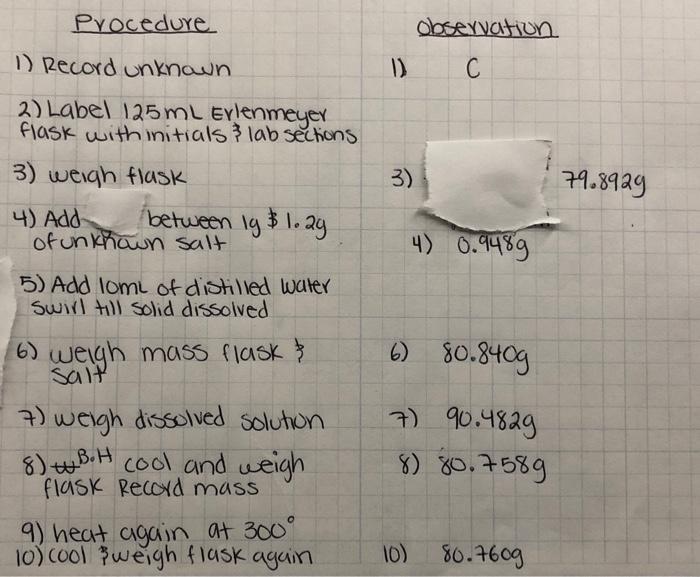 Procedure observation
1) Record unknown 1) C
2) Label 125mL Erlenmeyer
flask with initials & lab sections
3) weigh flask 3) 79.892g
4) Add between 1g & 1.2g
of unknown salt 4) 0.948g
5) Add 10mL of distilled water
swirl till solid dissolved
6) weigh mass flask & 6) 80.840g
salt
7) weigh dissolved solution 7) 90.482g
8) B.H cool and weigh 8) 80.758g
flask Record mass
9) heat again at 300°
10) cool & weigh flask again 10) 80.760g